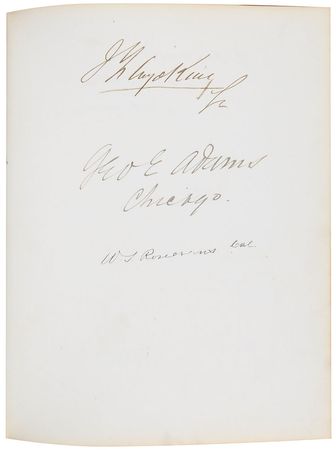 J Floyd King
La
Geo E Adams
Chicago.
W S Rosecrans Cal